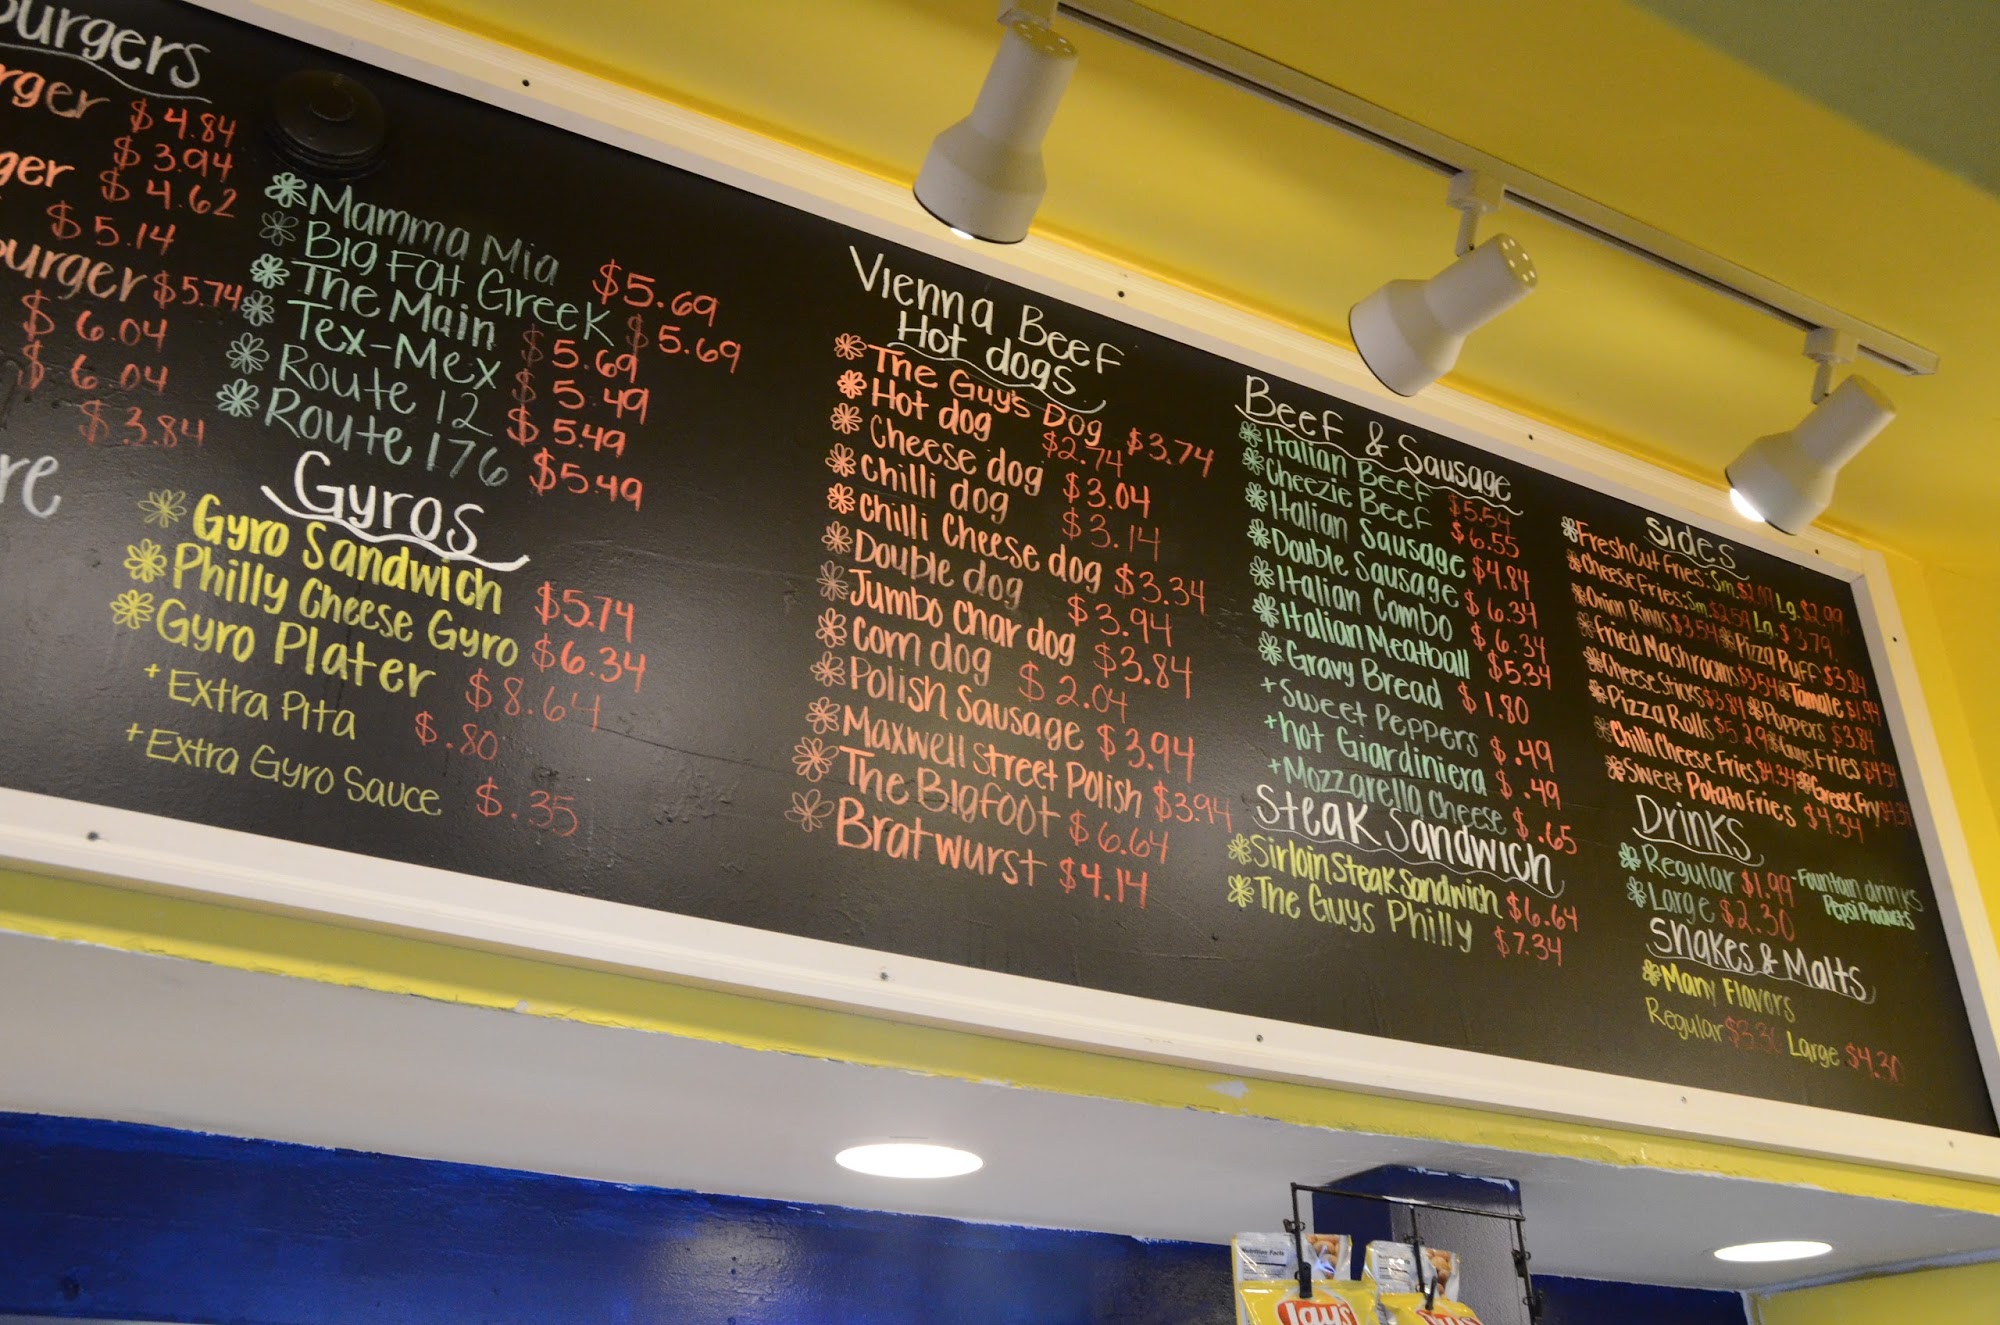 urgers
rger $4.84
$3.94
ger $4.62
$5.14
urger $5.74
$6.04
$6.04
$3.84
re
Mamma Mia $5.69
Big Fat Greek $5.69
The Main $5.69
Tex-Mex $5.49
Route 12 $5.49
Route 176 $5.49
Gyros
Gyro Sandwich $5.74
Philly Cheese Gyro $6.34
Gyro Plater $8.64
+ Extra Pita $.80
+ Extra Gyro Sauce $.35
Vienna Beef
Hot dogs
The Guy's Dog $3.74
Hot dog $2.74
Cheese dog $3.04
Chilli dog $3.14
Chilli Cheese dog $3.34
Double dog $3.94
Jumbo Char dog $3.84
Corn dog $2.04
Polish Sausage $3.94
Maxwell Street Polish $3.94
The Bigfoot $6.64
Bratwurst $4.14
Beef & Sausage
Italian Beef $5.54
Cheezie Beef $6.55
Italian Sausage $4.84
Double Sausage $6.34
Italian Combo $6.34
Italian Meatball $5.34
Gravy Bread $1.80
+ Sweet Peppers $.49
+ hot Giardiniera $.49
+ Mozzarella Cheese $.65
Steak Sandwich
Sirloin Steak Sandwich $6.64
The Guys Philly $7.34
Sides
Fresh Cut Fries: Sm. $2.09 Lg. $2.99
Cheese Fries: Sm $2.59 Lg. $3.79
Onion Rinns $3.54 Pizza Puff $3.84
Fried Mashrooms $3.54 Tamale $1.94
Cheese Sticks $3.84 Poppers $3.84
Pizza Rolls $5.29 Guys Fries $4.34
Chilli Cheese Fries $4.34 Greek Fry $4.34
Sweet Potato Fries $4.34
Drinks
Regular $1.99 - Fountain drinks
Large $2.30 Pepsi Products
Shakes & Malts
Many Flavors
Regular Large $4.30
Nutrition Facts
Lay's